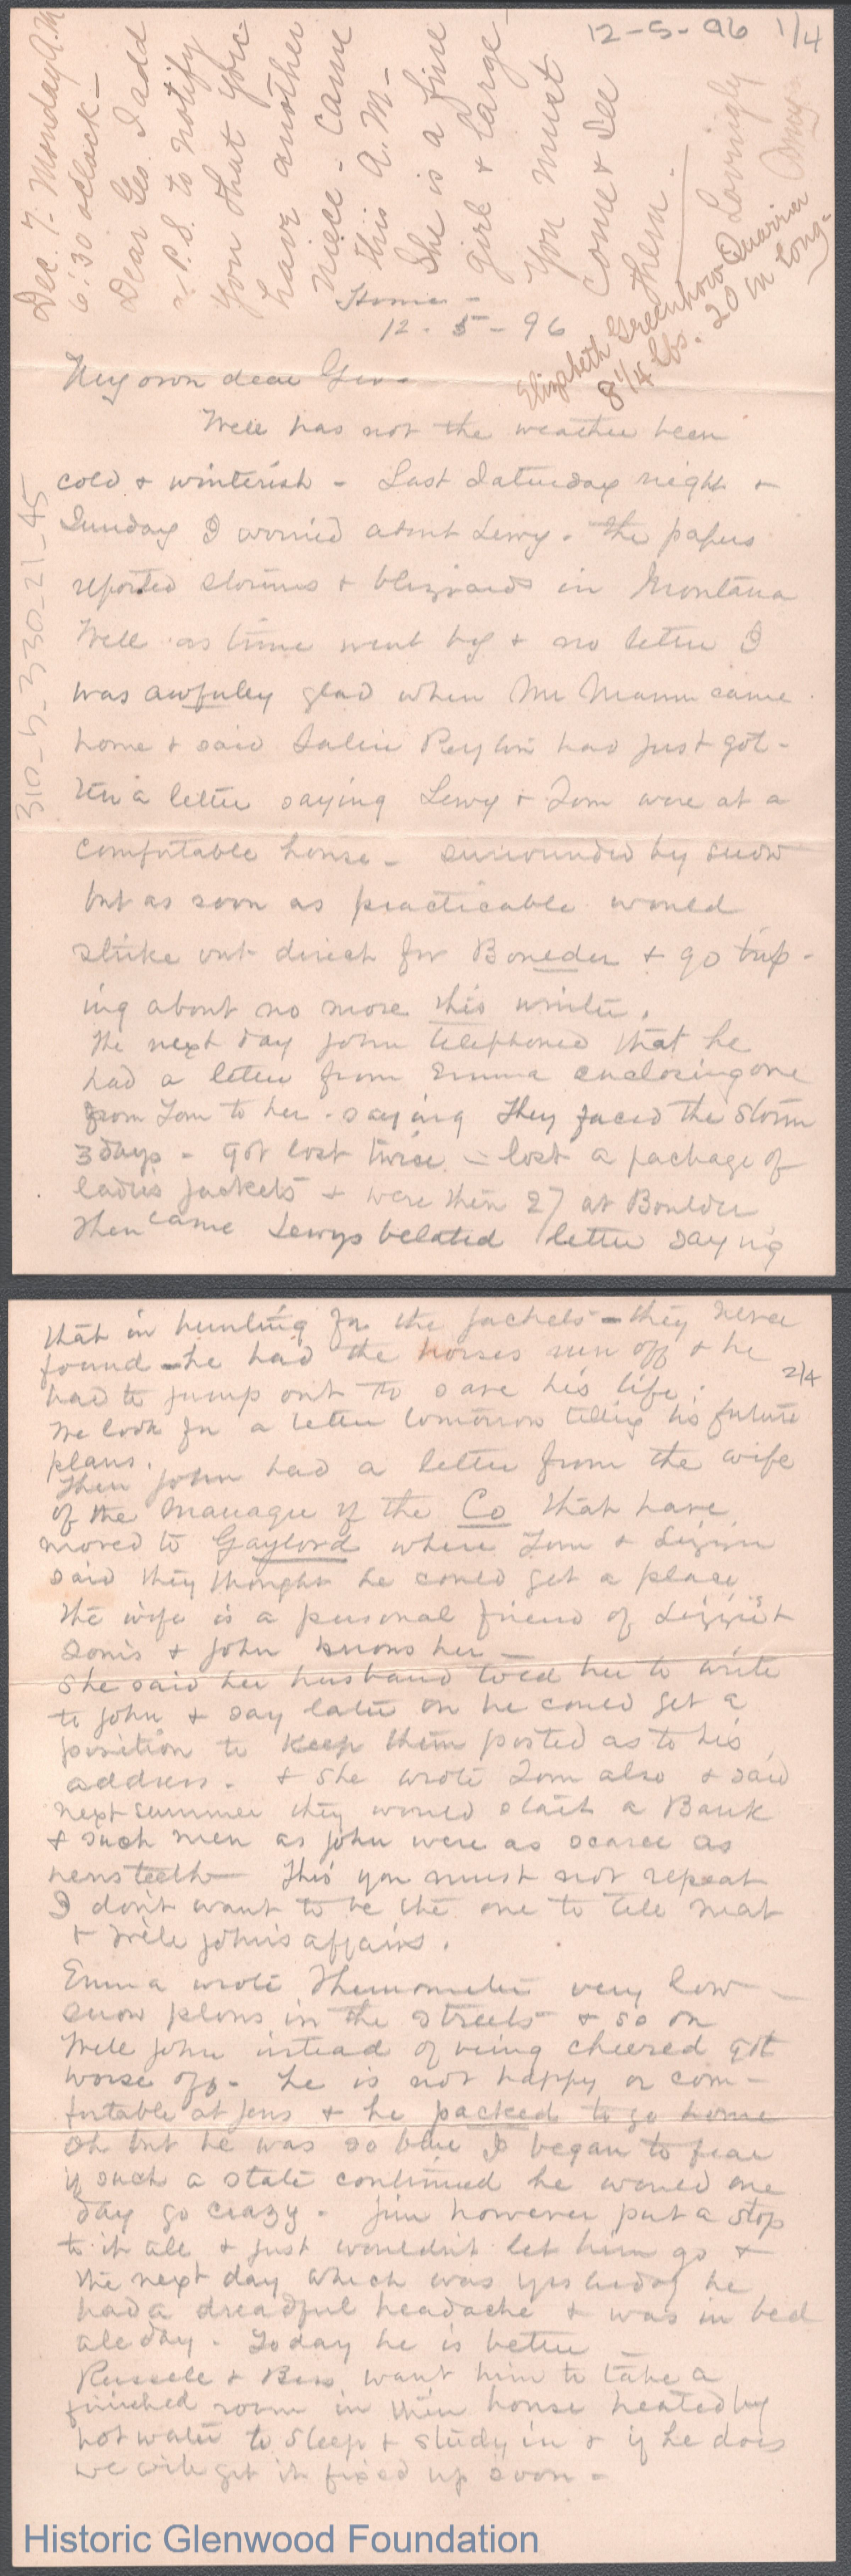 12-5-96 1/4
Dec. 7. Monday A.M
6:30 oclock -
Dear Geo. I add
a P.S. to notify
you that you
have another
niece - came
this A.M. -
She is a fine
girl & large -
You must
come & see
them. -
Lovingly
Elizabeth Greenhow Quarrier
8 1/4 lbs. 20 in long -
Home -
12 - 5 - 96
310-5-330-21-45
My own dear Geo -
Well has not the weather been
cold & winterish - Last Saturday night &
Sunday I worried about Lewy. The papers
reported storms & blizzards in Montana
Well as time went by & no letter I
was awfuley glad when Mr Mann came
home & said Salie had just got-
ten a letter saying Lewy & Tom were at a
comfortable house - surrounded by snow
but as soon as practicable would
strike out direct for Boulder & go trip-
ing about no more this winter.
The next day John telephoned that he
had a letter from Emma enclosing one
from Tom to her - saying they faced the storm
3 days - got lost twice - lost a package of
ladies jackets & were then 27 at Boulder
Then came Lewys belated letter saying
2/4
that in hunting for the jackets - they never
found - he had the horses run off & he
had to jump out to save his life.
We look for a letter tomorrow telling his future
plans.
Then John had a letter from the wife
of the manager of the Co that have
moved to Gaylord where Tom & Lizzie
said they thought he could get a place
The wife is a personal friend of Lizzie's &
& John knows her -
She said her husband told her to write
to John & say later on he could get a
position to keep them posted as to his
address. & she wrote Tom also & said
next summer they would start a Bank
& such men as John were as scarce as
hensteeth - This you must not repeat
I don't want to be the one to tell
& Johns affairs.
Emma wrote Thermometer very low -
snow plows in the streets & so on
Well John instead of being cheered got
worse off - he is not happy or com-
fortable at & he packed to go home
Oh but he was so blue I began to fear
if such a state continued he would one
day go crazy. Jim however put a stop
to it all & just wouldn't let him go &
the next day which was yesterday he
had a dreadful headache & was in bed
all day. Today he is better -
Russell & Bess want him to take a
finished room in their house heated by
hot water to sleep & study in & if he does
we will get it fixed up soon -
Historic Glenwood Foundation